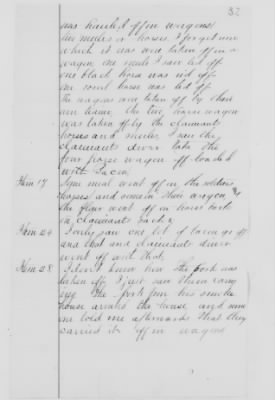 32
was hauled off in wagons
on mules or horses. I forget now
which it was one taken off in a
wagon one mule I saw led off
one black horse was rid off
one sorrel horse was led off
The wagons are taken off by their
own teams. The two horse wagon
was taken off by the claimants
horses and mules. I saw the
claimants driver take the
four horse wagon off loaded
with bacon
Item 17 Some meal went off in the soldiers
horses and some in their wagons
the flour went off in
claimants
Item 24 I only saw one lot of bacon go off
and that and claimants driver
went off with that.
Item 28 I don't know how the pork was
taken off. I just saw them carry
ing the pork from his smoke
house around the house and some
one told me afterwards that they
carried it off in wagons